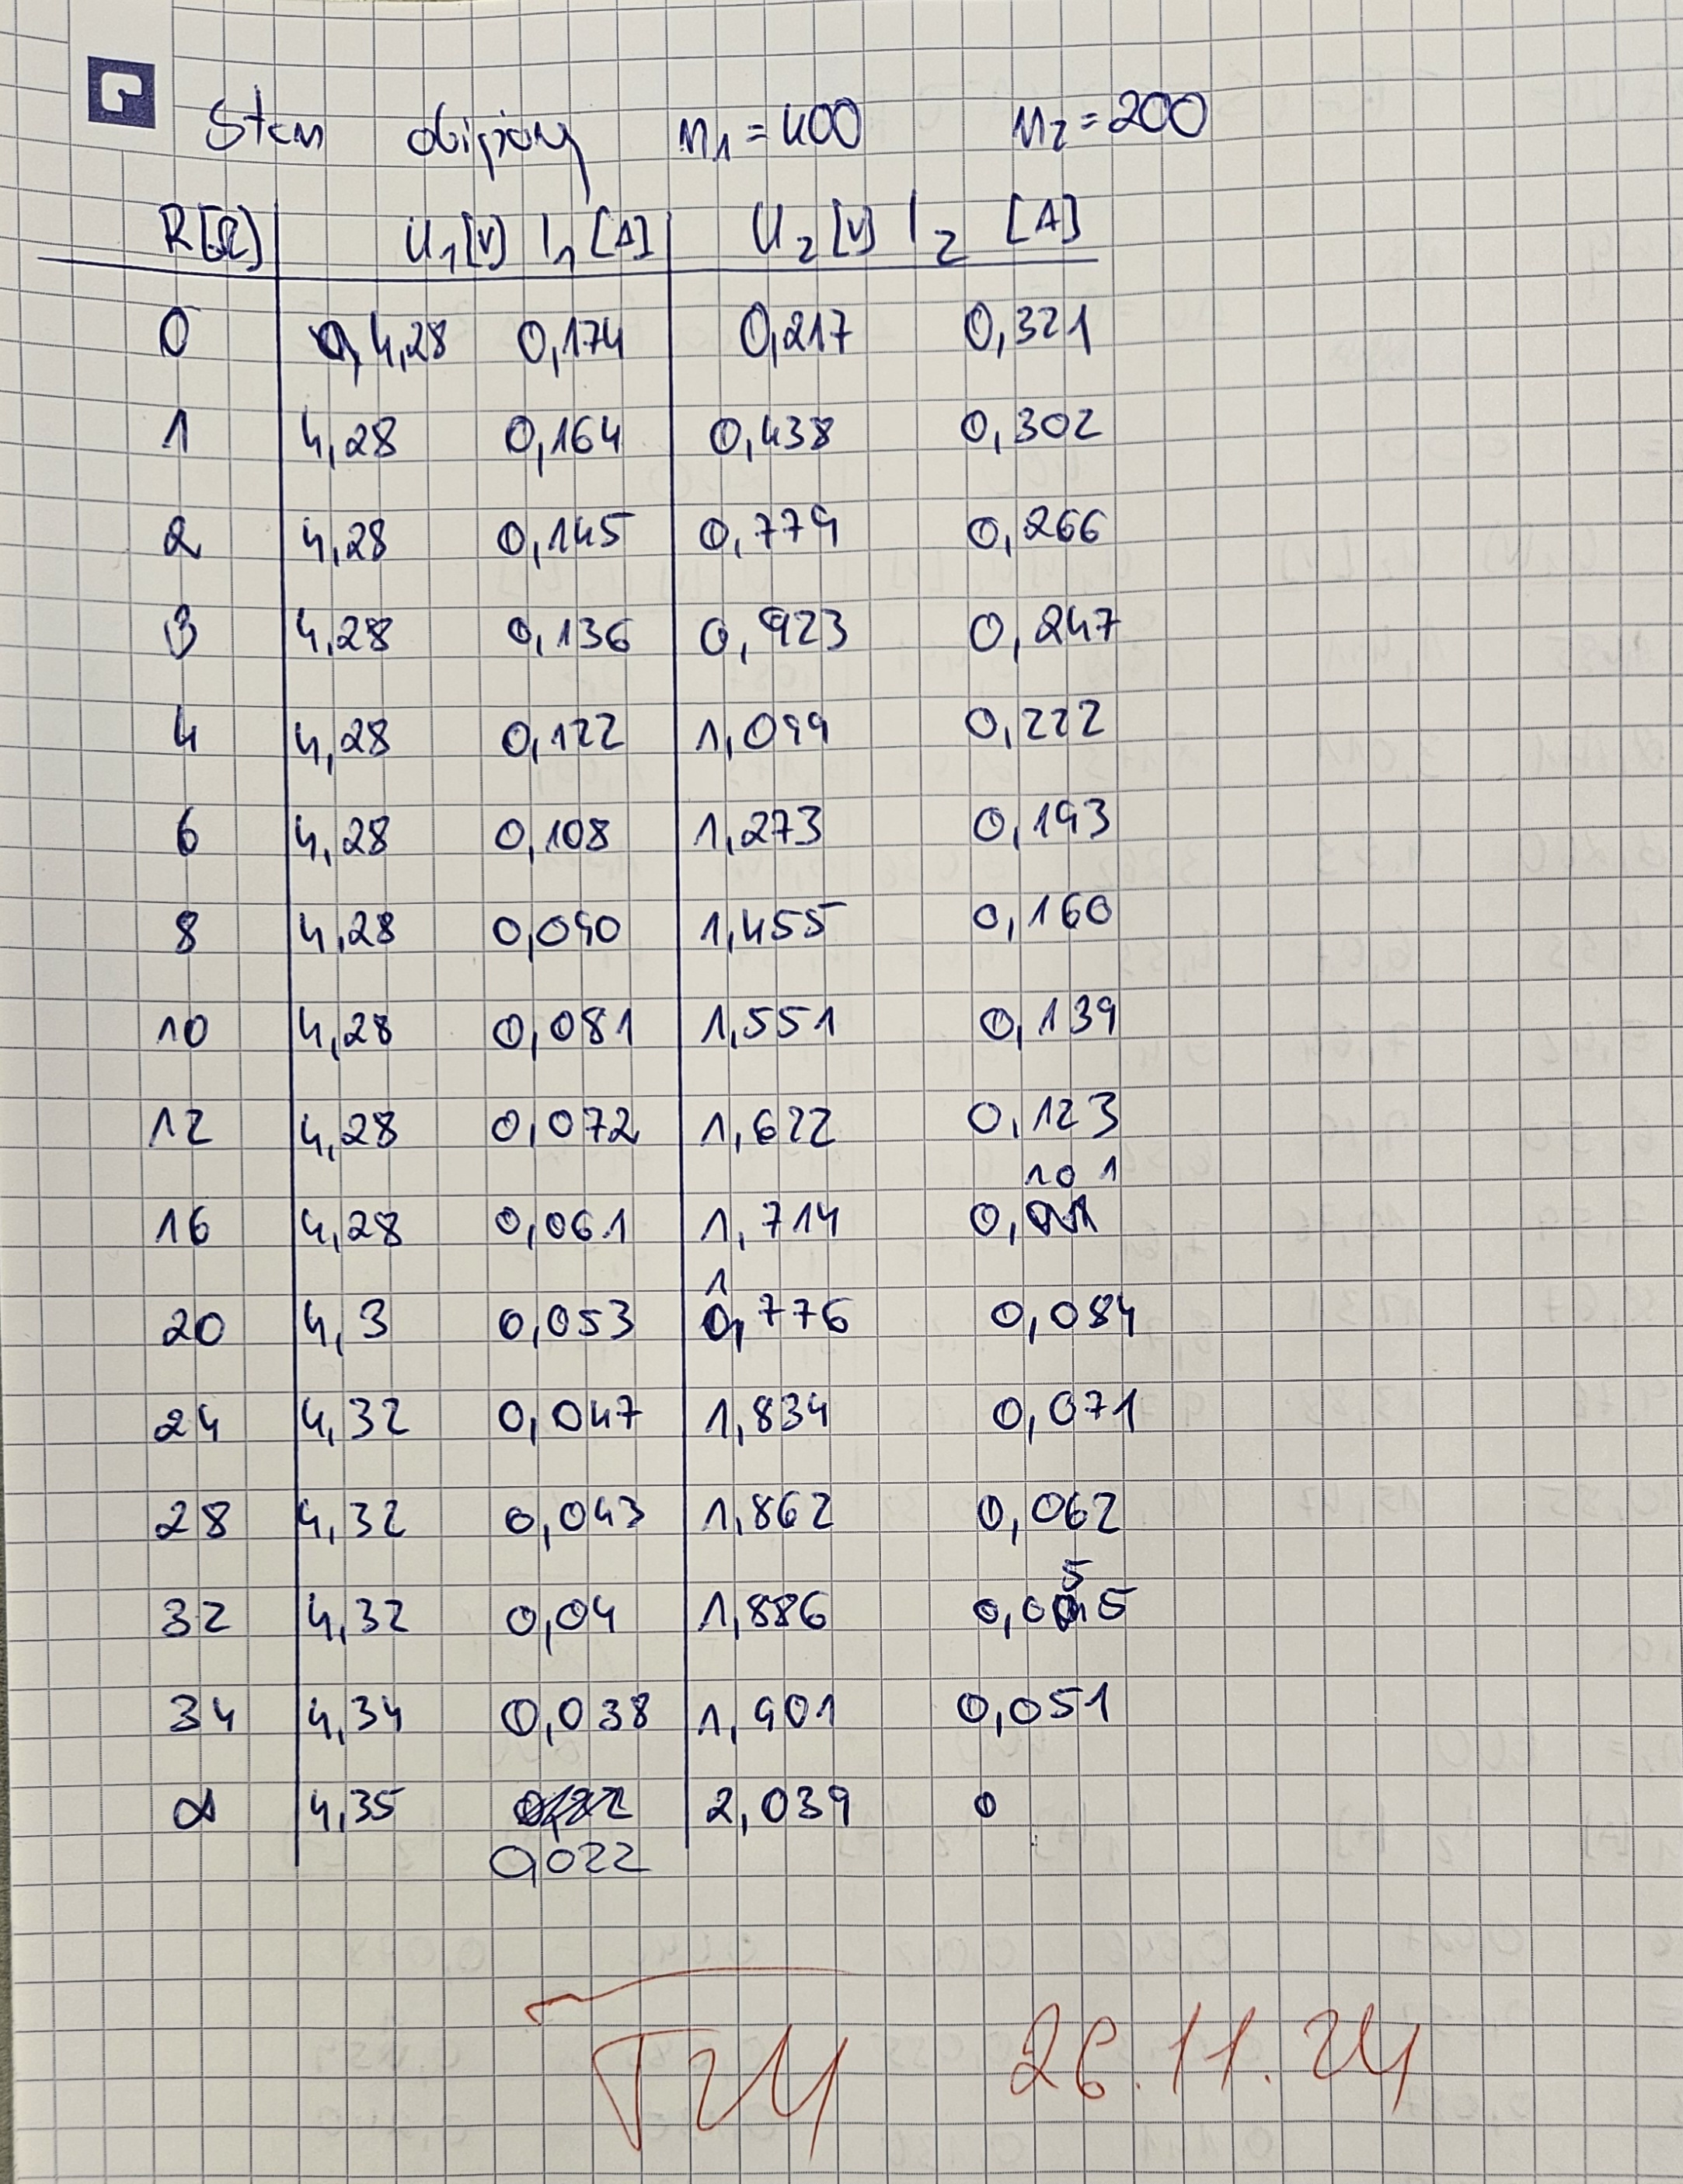 Stan obciążony n1=400 n2=200
R[Ω] U1[V] I1[A] U2[V] I2 [A]
0 4,28 0,174 0,217 0,321
1 4,28 0,164 0,438 0,302
2 4,28 0,145 0,779 0,266
3 4,28 0,136 0,923 0,247
4 4,28 0,122 1,099 0,222
6 4,28 0,108 1,273 0,193
8 4,28 0,090 1,455 0,160
10 4,28 0,081 1,551 0,139
12 4,28 0,072 1,622 0,123
16 4,28 0,061 1,714 0,101
20 4,3 0,053 1,776 0,084
24 4,32 0,047 1,834 0,071
28 4,32 0,043 1,862 0,062
32 4,32 0,04 1,886 0,055
34 4,34 0,038 1,901 0,051
∞ 4,35 0,022 2,039 0
26.11.24